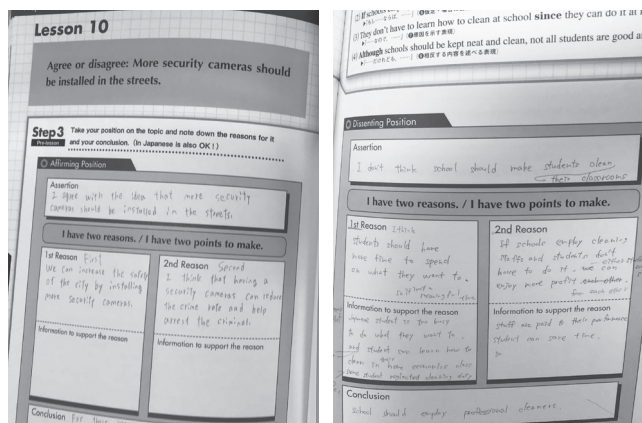 Lesson 10
Agree or disagree: More security cameras should
be installed in the streets.
Step3 Take your position on the topic and note down the reasons for it
and your conclusion. (In Japanese is also OK!)
Affirming Position
Assertion
I agree with the idea that more security
cameras should be installed in the streets.
I have two reasons. / I have two points to make.
1st Reason First
We can increase the safety
of the city by installing
more security cameras.
Information to support the reason
2nd Reason Second
I think that having a
security cameras can reduce
the crime rate and help
arrest the criminal.
Information to support the reason
Conclusion For these
(2) If schools
(3) They don't have to learn how to clean at school since they can do it at
(4) Although schools should be kept neat and clean, not all students are good a
Dissenting Position
Assertion
I don't think school should make students clean
their classrooms
I have two reasons. / I have two points to make.
1st Reason I think
students should have
have time to spend
on what they want to.
Information to support the reason
student is too busy
to do what they want to.
and student can learn how to
clean in home economics class
some student neglected cleaning duty
2nd Reason
If schools employ cleaning
staffs and students don't
have to do it. we can
enjoy more profit
for each other
Information to support the reason
staff are paid to their performance
student can save time.
so
Conclusion
School should employ professional cleaners.